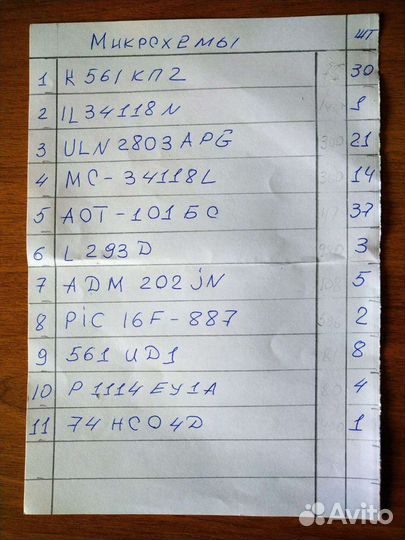 Микросхемы шт
1 К 561 КП2 30
2 IL34118N 1
3 ULN2803APG 21
4 MC-34118L 14
5 АОТ-101БС 37
6 L 293D 3
7 ADM 202 jN 5
8 PiC 16F-887 2
9 561 UD1 8
10 Р1114ЕУ1А 4
11 74HC04D 1
Avito